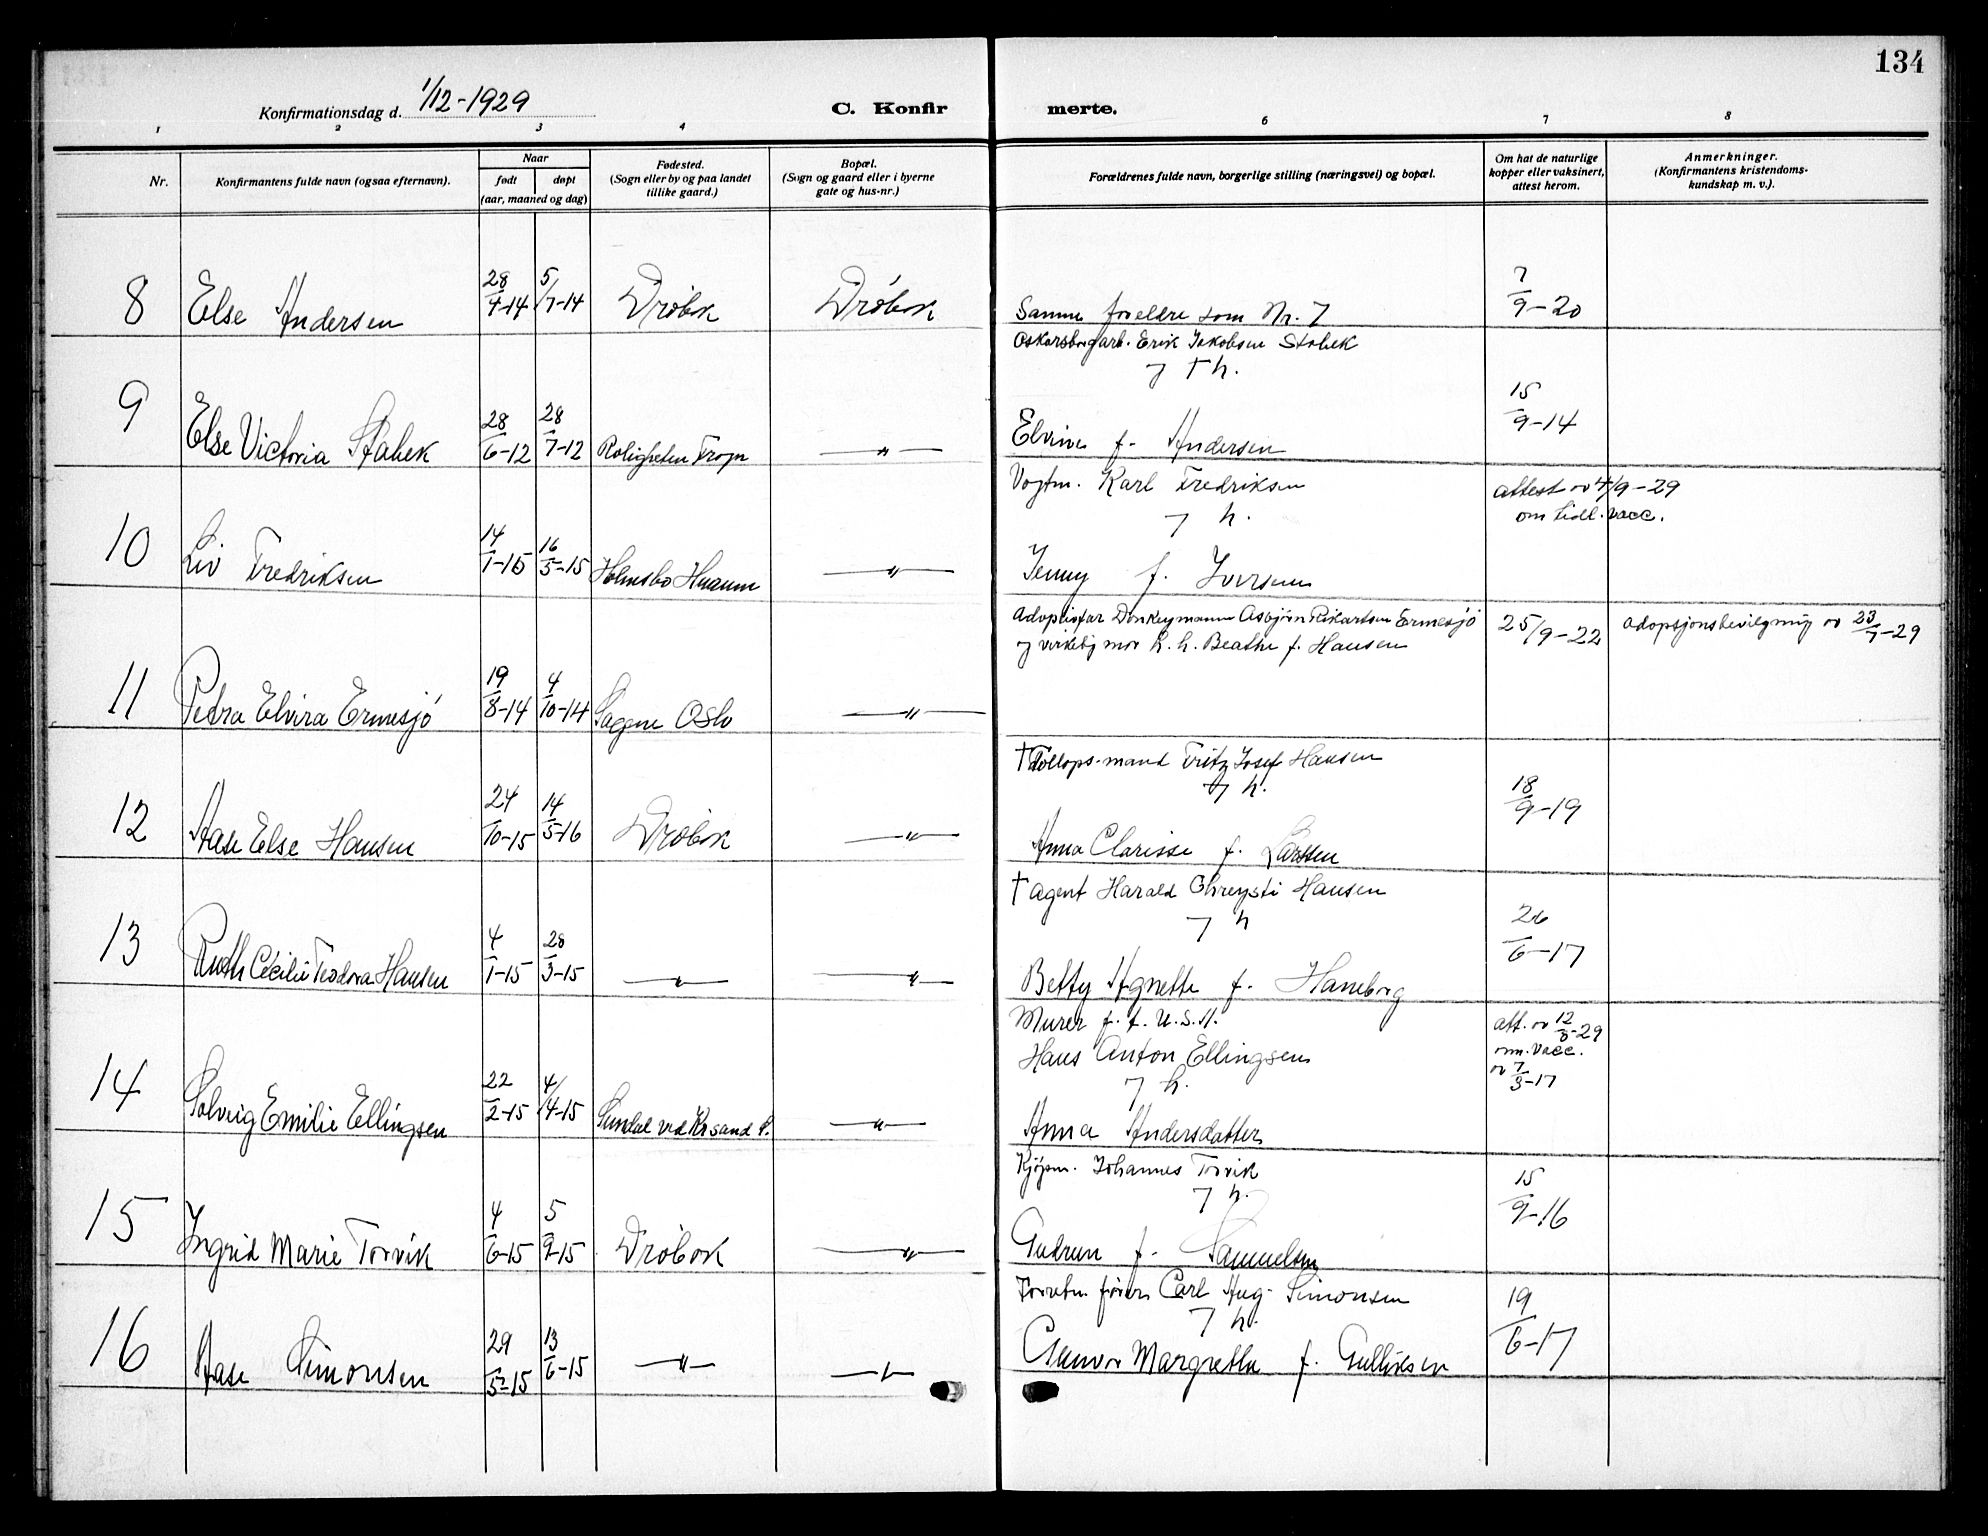 134
Konfirmationsdag d. 1/12-1929
C. Konfirmerte.
1 2 3 4 6 7 8
Nr.
Konfirmantens fulde navn (ogsaa efternavn).
Naar
født
døpt
(aar, maaned og dag)
Fødested.
(Sogn eller by og paa landet
tillike gaard.)
Bopæl.
(Sogn og gaard eller i byerne
gate og hus-nr.)
Forældrenes fulde navn, borgerlige stilling (næringsvei) og bopæl.
Om hat de naturlige
kopper eller vaksinert,
attest herom.
Anmerkninger.
(Konfirmantens kristendoms-
kundskap m. v.).
8 Else Andersen 28/4-14 5/7-14 Drøbak Drøbak
Samme foreldre som Nr. 7 7/9-20
9 Else Victoria Stabek 28/6-12 28/7-12 Roligheten Frogn —"—
Oskarsborgarb. Erik Jakobsen Stabek
og † h.
Elvine f. Andersen 15/9-14
10 Liv Fredriksen 14/1-15 16/5-15 Holmsbo Hurum —"—
Vogtm. Karl Fredriksen
og h.
Jenny f. Iversen
attest av 4/9-29
om tidl. vacc.
11 Petra Elvira Ermesjø 19/8-14 4/10-14 Sagene Oslo —"—
Adoptivfar Donkeymann Asbjørn Rikartsen Ermesjø
og virkelig mor h. h. Beathe f. Hansen
25/9-22 adopsjonsbevilgning av 23/7-29
12 Aase Else Hansen 24/10-15 14/5-16 Drøbak —"—
† Tollops.mand Fritz Josef Hansen
og h.
Anna Clarisse f. Larssen 18/9-19
13 Ruth Cecilie Teodora Hansen 4/1-15 28/3-15 —"— —"—
† agent Harald Chreysti Hansen
og h
Betty Agnette f. Haneborg 26/6-17
14 Solveig Emilie Ellingsen 22/2-15 4/4-15 Sundal ved Kr.sand S. —"—
Murer f. t. U.S.A.
Hans Anton Ellingsen
og h.
Anna Andersdatter
att. av 12/8-29
om. vacc.
av 7/3-17
15 Ingrid Marie Torvik 4/6-15 5/9-15 Drøbak —"—
Kjøpm. Johannes Torvik
og h.
Gudrun f. Samuelsen 15/9-16
16 Aase Simonsen 29/5-15 13/6-15 —"— —"—
fører Carl Aug. Simonsen
og h.
Gunvor Margrethe f. Gulliksen 19/6-17